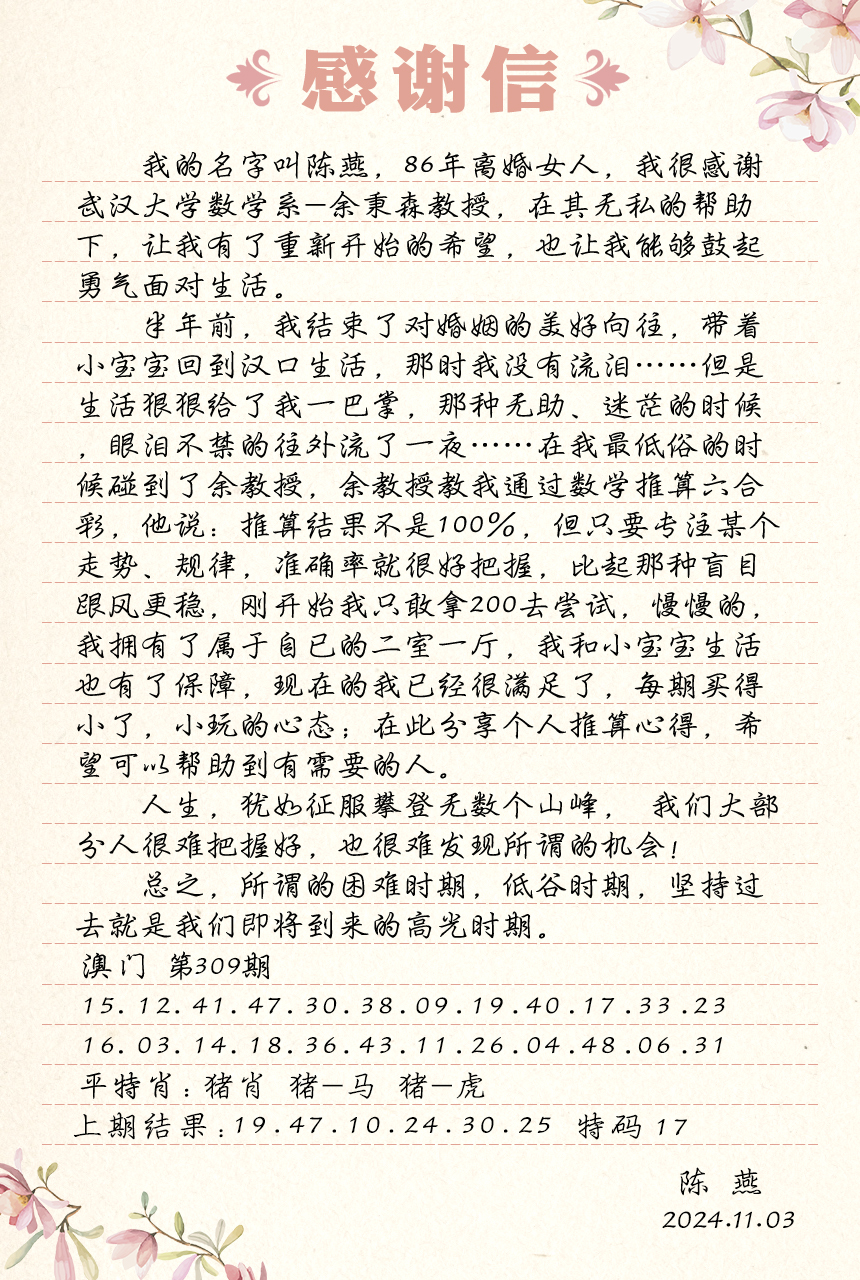 感谢信
我的名字叫陈燕，86年离婚女人，我很感谢
武汉大学数学系—余秉森教授，在其无私的帮助
下，让我有了重新开始的希望，也让我能够鼓起
勇气面对生活。
半年前，我结束了对婚姻的美好向往，带着
小宝宝回到汉口生活，那时我没有流泪……但是
生活狠狠给了我一巴掌，那种无助、迷茫的时候
，眼泪不禁的往外流了一夜……在我最低俗的时
候碰到了余教授，余教授教我通过数学推算六合
彩，他说：推算结果不是100%，但只要专注某个
走势、规律，准确率就很好把握，比起那种盲目
跟风更稳，刚开始我只敢拿200去尝试，慢慢的，
我拥有了属于自已的二室一厅，我和小宝宝生活
也有了保障，现在的我已经很满足了，每期买得
小了，小玩的心态；在此分享个人推算心得，希
望可以帮助到有需要的人。
人生，犹如征服攀登无数个山峰， 我们大部
分人很难把握好，也很难发现所谓的机会！
总之，所谓的困难时期，低谷时期，坚持过
去就是我们即将到来的高光时期。
澳门 第309期
15.12.41.47.30.38.09.19.40.17.33.23
16.03.14.18.36.43.11.26.04.48.06.31
平特肖：猪肖 猪—马 猪—虎
上期结果：19.47.10.24.30.25 特码 17
陈 燕
2024.11.03